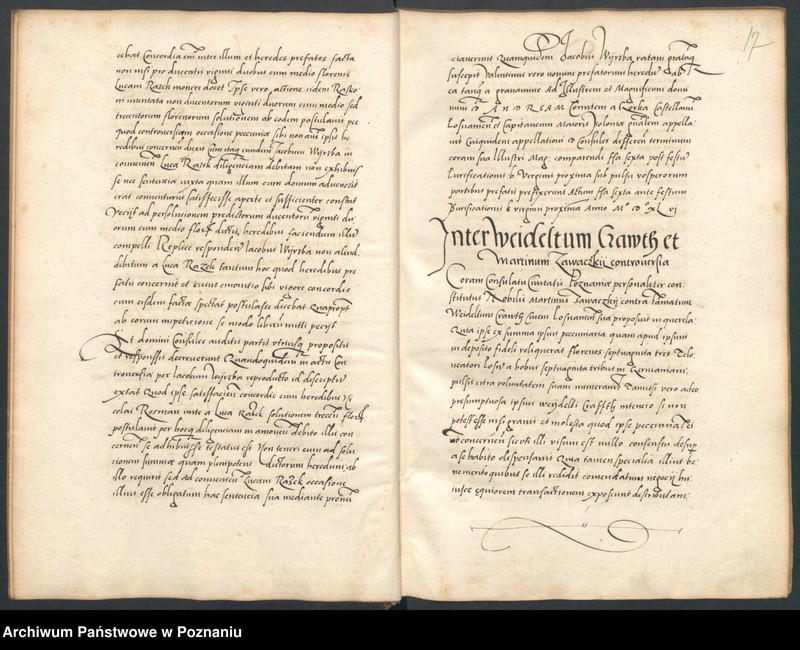 cebat Concordia eni inter illum et heredes prefatos facta
non nisi pro ducentis viginti duobus cum medio florenis
Lucam Razek monere docet Ipse vero actione eidem Rasko
ni intentata non ducentorum viginti duorum cum medio sed
trecentorum florenorum solutionem ab eodem postulavit
quod controversiam occasione pecuniae sibi non aut ipsis he
redibus concernen duxit Cum itaque eundem Iacobum Wyrba in
convenien Luca Razek diligenciam debitam non exhibuis
se nec sentencia iuxta quam illum cum domum advenerit
erat conventurus satisfecisse aperte et sufficienter constat
petyt ad persolucionem predictorum ducentorum viginti du
orum cum medio floren dictis heredibus faciendum illum
compelli Replice responden Iacobus Wyrba non aliud
debitum a Luca Razek tantum hoc quod heredibus pre
fatis concernit et cuius monitio sibi vigore concordie
cum eisdem factae spectat postulasse dicebat Quapropt
ab eorum impeticione se modo liberum mitti petyt
Et domini Consules auditis partium utriusque propositis
et responsis decreverunt Quandoquidem in actis Con
troversiae per Iacobum Wyrba reproductis id descriptum
extat Quod ipse satisfaciens concordie cum heredibus Ni
colai Rotman inite a Luca Razek solutionem trecen floren
postulavit per hocque diligenciam in amonen debito illis con
cernen se adhibuisse testatus est Non teneri eum ad solu
cionem summe quam plenipoten dictorum heredum ab
illo requirit sed ad convenien Lucam Razek occasione
illius esse obligatum hac sentencia sua mediante pronun
17
ciaverunt Quamquidem Iacobus Wyrba ratam gratamque
suscepit Valentinus vero nomine prefatorum heredum ab
ea tanquam a gravamine Ad Illustrem et Magnificum domi
num D. ANDREAM Comitem a Gorka Castellanum
Posnaniensem et Capitaneum Maioris Poloniae generalem appella
vit Cuiquidem appellationi D Consules differen terminum
coram sua Illustri Mag: comparendi ffa sexta post festum
Purificationis b Virginis proxima sub pulsu vesperorum
partibus prefatis prefixerunt Actum ffa sexta ante festum
Purificationis b virginis proxima Anno M D XL vi
Inter Weideltum Crawth et
Martinum Zawaczkij controversia
Coram Consulatu Civitatis Poznaniae personaliter con
stitutus Nobilis Martinus Zawaczkij contra famatum
Weideltum Crawth Civem Posnaniensem sua proposuit in querela
Quia ipse ex summa ipsius pecuniaria quam apud ipsum
in deposito fideli reliquerat florenos septuaginta tres Telo
neatori Posnan a bobus septuaginta tribus in Germaniam
pulsis citra voluntatem suam numeravit Tametsi vero adeo
presumptuosa ipsius Weydelti Craffth intencio si non
potest esse nisi gravis et molesta quod ipse pecunia rei
suo concernen sicuti illi visum est nullo consensu desup
a se habito dispensavit Qua tamen specialia illius be
nemeritoquibus se illi reddidit comendatum negocii hu
iusce equiorem transactionem exposcunt distribuam
Archiwum Państwowe w Poznaniu